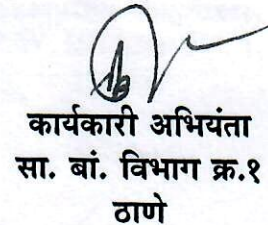 कार्यकारी अभियंता
सा. बां. विभाग क्र.१
ठाणे